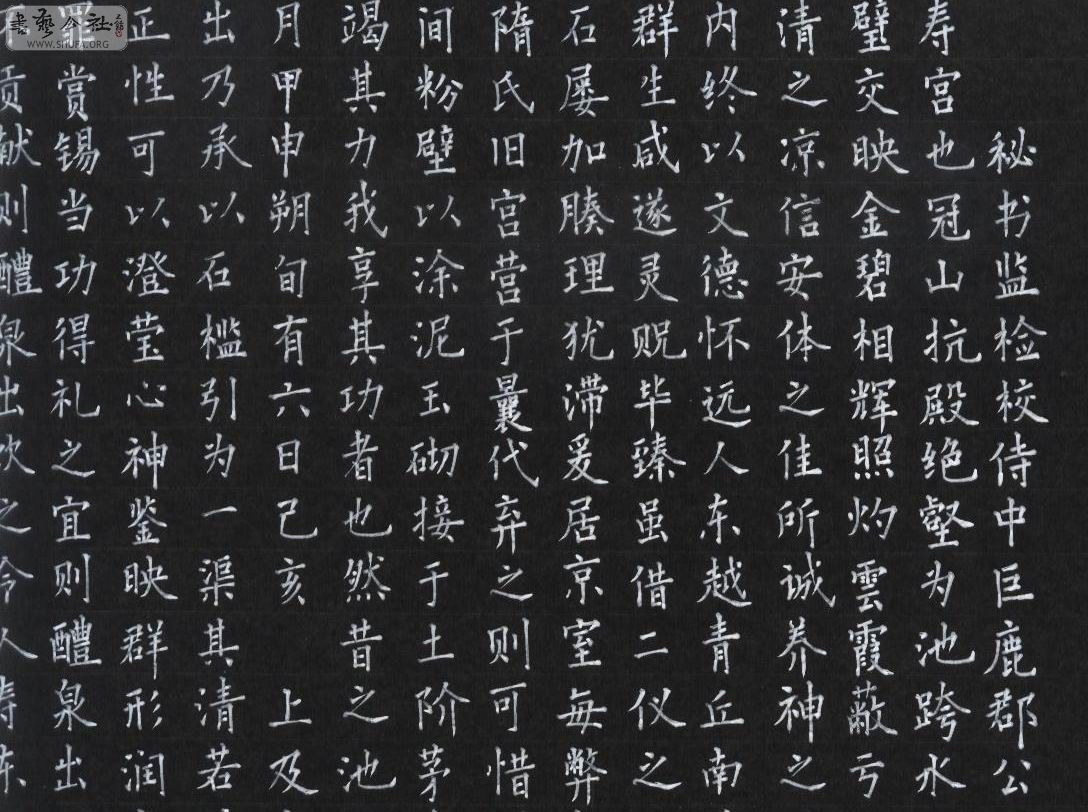 秘书监检校侍中巨鹿郡公
寿宫也冠山抗殿绝壑为池跨水
璧交映金碧相辉照灼雲霞蔽亏
清之凉信安体之佳所诚养神之
内终以文德怀远人东越青丘南
群生咸遂灵贶毕臻虽借二仪之
石屡加腠理犹滞爰居京室每弊
隋氏旧宫营于曩代弃之则可惜
间粉壁以涂泥玉砌接于土阶茅
竭其力我享其功者也然昔之池
月甲申朔旬有六日己亥 上及
出乃承以石槛引为一渠其清若
正性可以澄莹心神鉴映群形润
罪赏锡当功得礼之宜则醴泉出
贡献则醴泉出饮之令人寿东
書藝公社
WWW.SHUFA.ORG